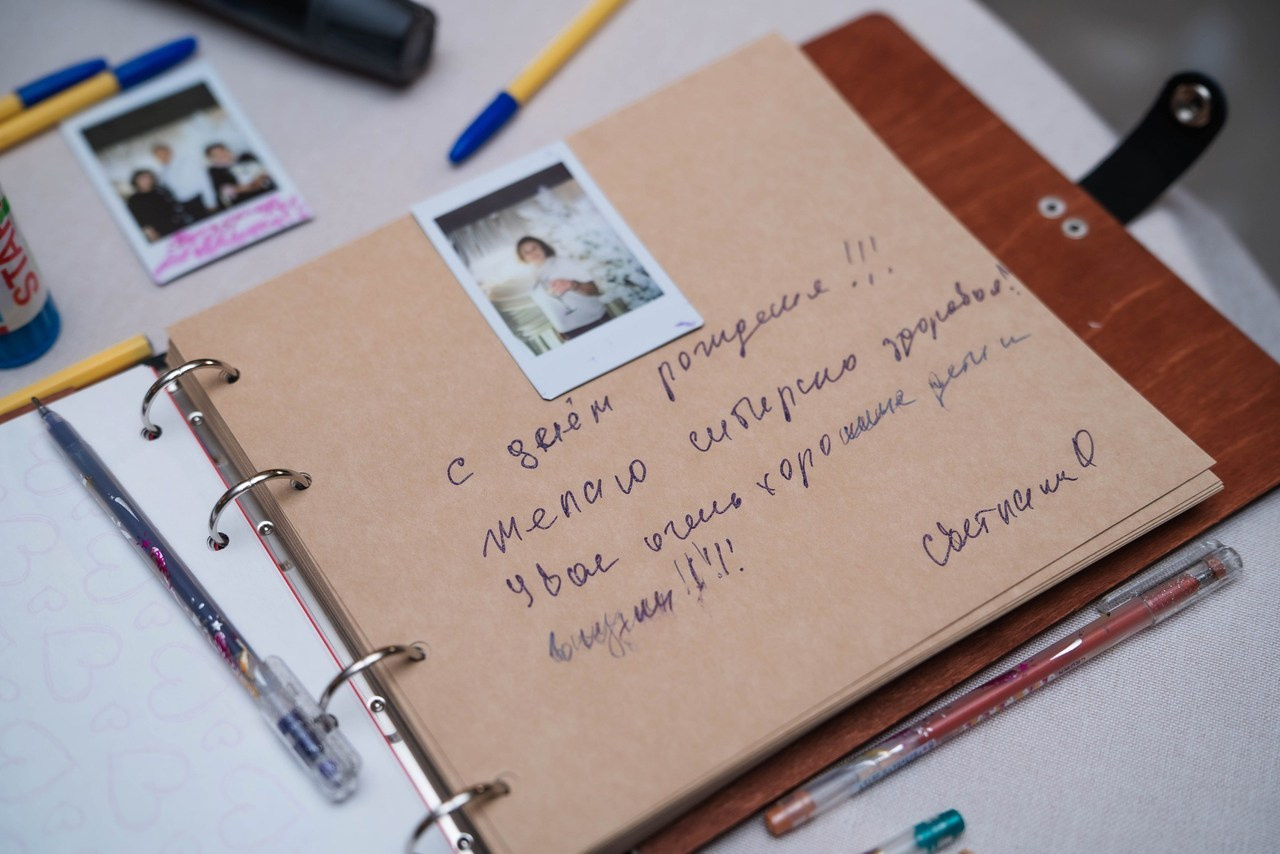 с днём рождения!!!
желаю сибирско здоровья!
У вас очень хорошие дети и
внучки!!!!!
Светлана О
STAR